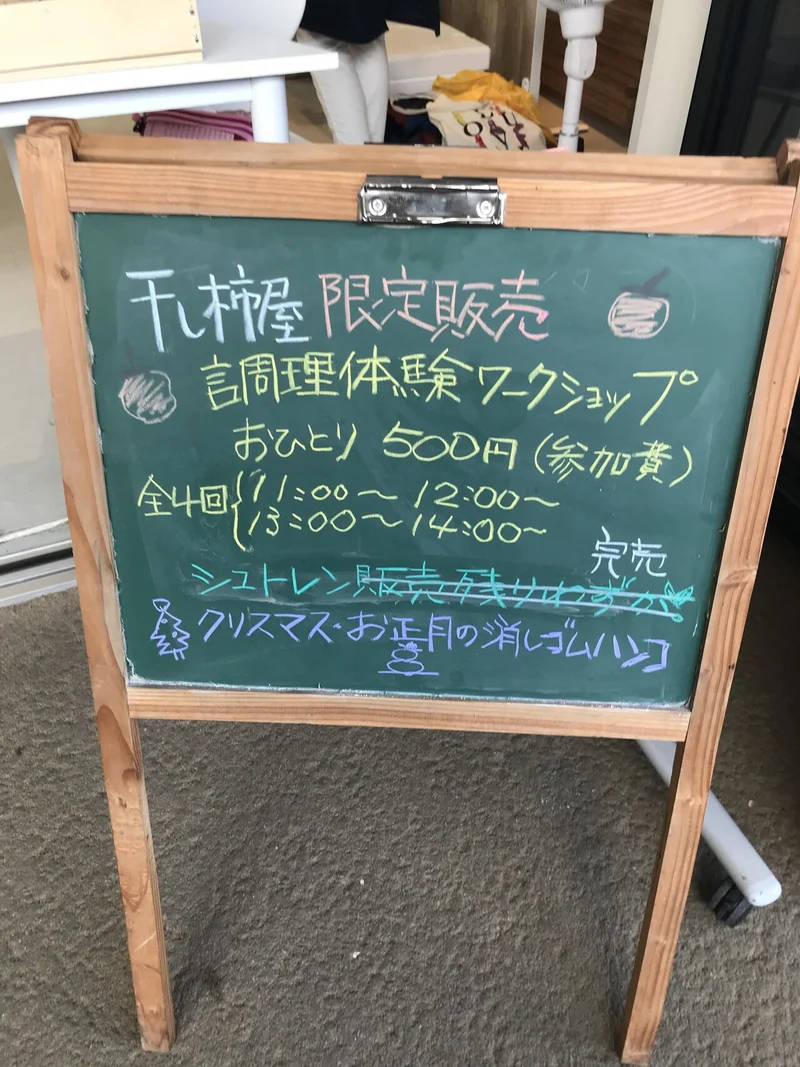 干し柿屋 限定販売
調理体験ワークショップ
おひとり 500円(参加費)
全4回 11:00〜 12:00〜
13:00〜 14:00〜
完売
シュトレン販売残りわずか
クリスマス・お正月の消しゴムハンコ